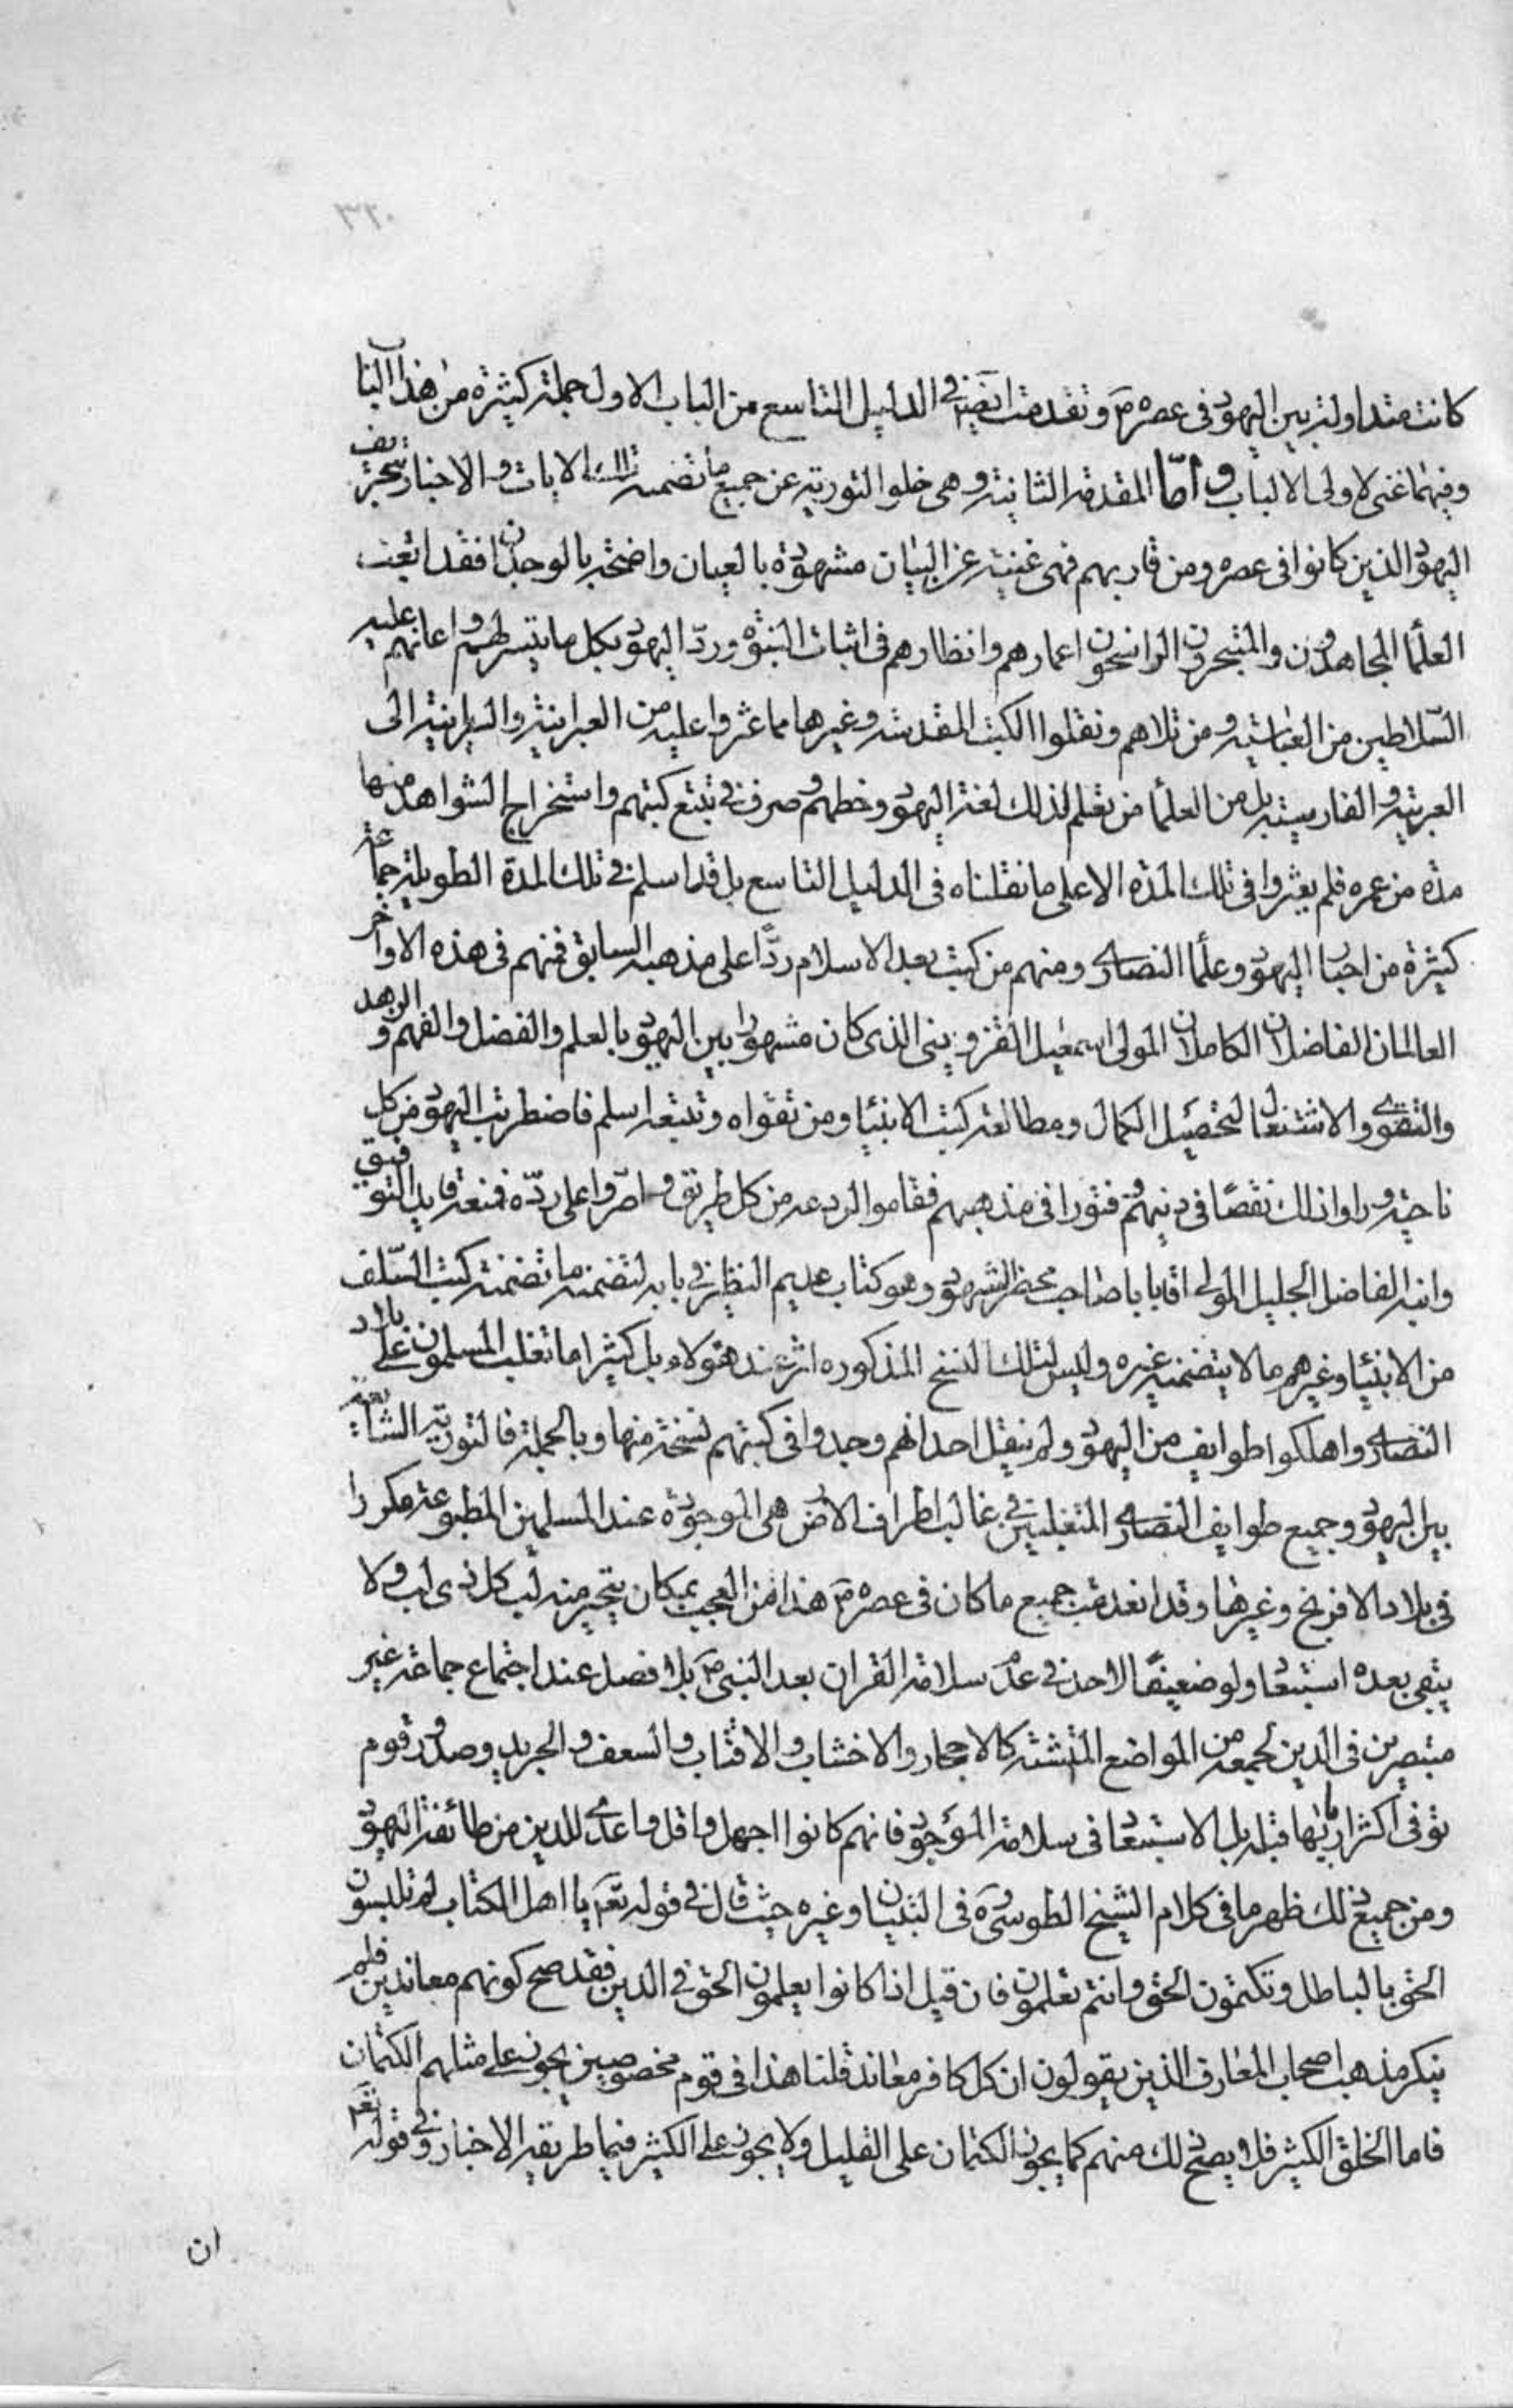 كانت متداولة بين اليهود في عصره ص وتقدمت ايضا في الدليل التاسع من الباب الاول جملة كثيرة من هذا الباب
وفيهما غنى لاولى الالباب واما المقدمة الثانية وهى خلو التورية عن جميع ما تضمنه تلك الايات والاخبار بتحريف
اليهود الذين كانوا في عصره ومن قاربهم فهى غنية عن البيان مشهودة بالعيان واضحة بالوجدان فقد اتعبت
العلما المجاهدون والمتبحرون الراسخون اعمارهم وانظارهم في اثبات النبوة ورد اليهود بكل ما تيسر لهم واعانهم عليه
السلاطين من العباسية ومن تلاهم ونقلوا الكتب المقدسة وغيرها مما عثروا عليه من العبرانية والسريانية الى
العربية والفارسية بل من العلما من تعلم لذلك لغة اليهود وخطهم وصرف في تتبع كتبهم واستخراج الشواهد منها
مدة من عمره فلم يعثروا في تلك المدة الا على ما نقلناه في الدليل التاسع بل قد اسلم في تلك المدة الطويلة جماعة
كثيرة من احبار اليهود وعلما النصارى ومنهم من كتب بعد الاسلام ردّا على مذهبه السابق فمنهم في هذه الاواخر
العالمان الفاضلان الكاملان المولى اسمعيل القزوينى الذى كان مشهورا بين اليهود بالعلم والفضل والفهم والزهد
والتقوى والاشتغال لتحصيل الكمال ومطالعة كتب الانبيا ومن تقواه وتتبعه اسلم فاضطربت اليهود من كل
ناحية وراوا ذلك نقصا في دينهم وفتورا في مذهبهم فقاموا لردعه من كل طريق واصروا على ردّه فمنعه قايد التوفيق
وابنه الفاضل الجليل المولى اقا بابا صاحب محضر الشهود وهو كتاب عديم النظير في بابه لتضمنه ما تضمنته كتب السّلف
من الانبيا وغيرهم ما لا يتضمنه غيره وليس لتلك النسخ المذكوره اثر عند هؤلاء بل كثيرا ما تغلب المسلمون على بلاد
النصارى واهلكوا طوايف من اليهود ولم ينقل احد انهم وجدوا في كتبهم نسخة منها وبالجملة فالتورية الشايعة
بين اليهود وجميع طوايف النصارى المتغلبين في غالب اطراف الارض هى الموجودة عند المسلمين المطبوعة مكررا
في بلاد الافرنج وغيرها وقد انعدمت جميع ما كان في عصره ص هذا من العجب بمكان يتحير منه لب كل ذى لب ولا
يبقى بعده استبعاد ولو ضعيفا لاحد في عدم سلامة القران بعد النبى ص بلا فصل عند اجتماع جماعة غير
متبصرين في الدين لجمعه من المواضع المتشتتة كالاحجار والاخشاب والاقتاب والسعف والجريد وصدور قوم
توفى اكثر اربابها قبله بل الاستبعاد في سلامة الموجود فانهم كانوا اجهل واقل واعدى للدين من طائفة اليهود
ومن جميع ذلك ظهر ما في كلام الشيخ الطوسى ره في التبيان وغيره حيث قال في قوله تعالى يا اهل الكتاب لم تلبسون
الحق بالباطل وتكتمون الحق وانتم تعلمون فان قيل اذا كانوا يعلمون الحق في الدين فقد صح كونهم معاندين فلم
ينكر مذهب اصحاب المعارف الذين يقولون ان كل كافر معاند قلنا هذا في قوم مخصوصين يجوز على مثلهم الكتمان
فاما الخلق الكثير فلا يصح ذلك منهم كما يجوز الكتمان على القليل ولا يجوز على الكثير فيما طريقه الاخبار وفي قوله تعالى
ان